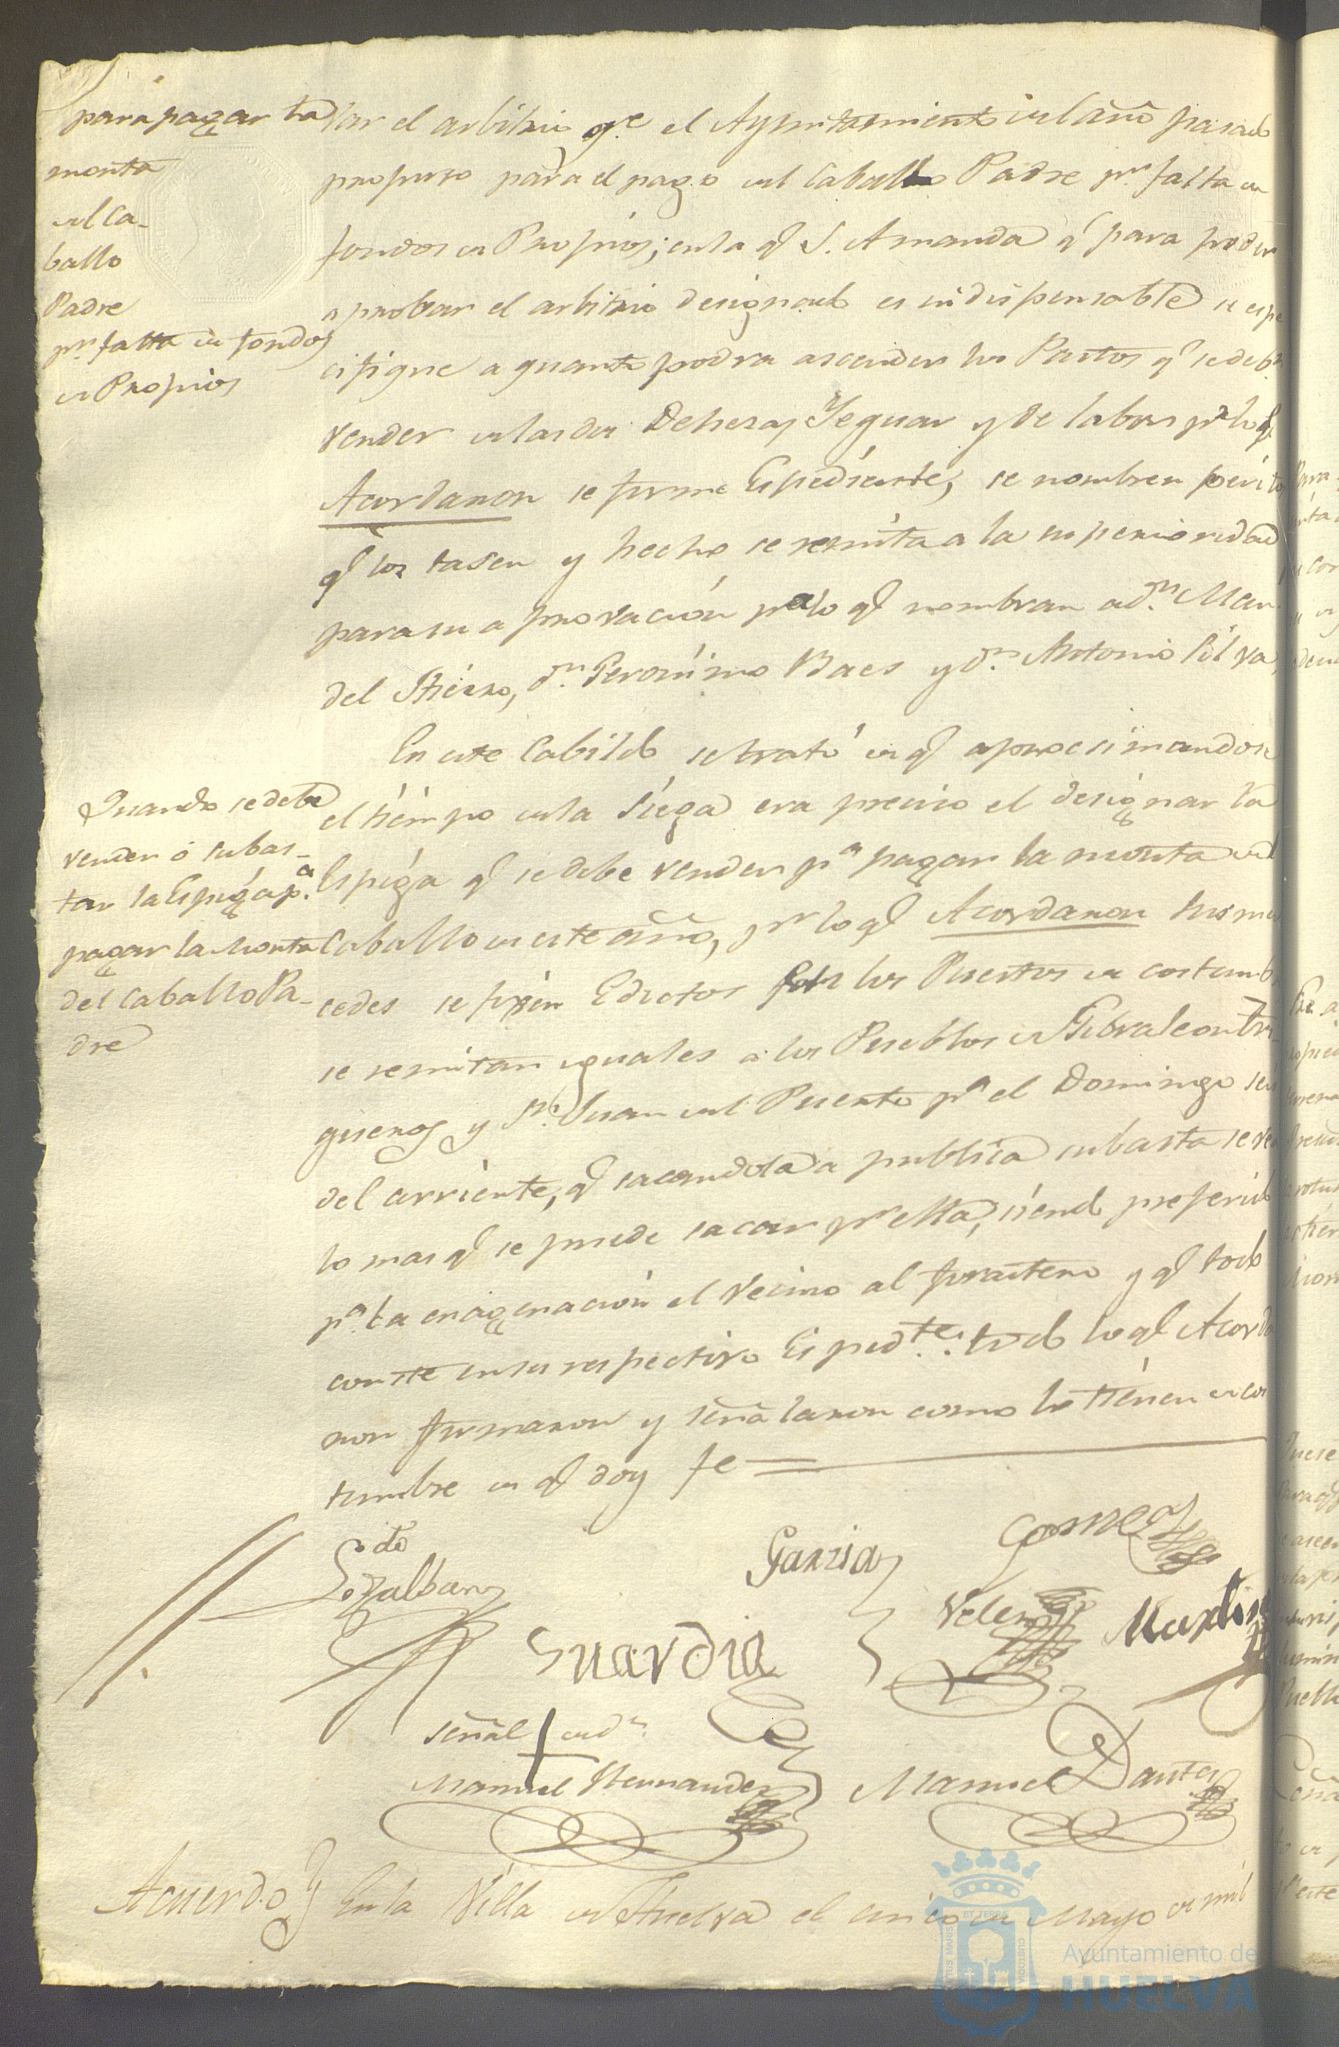 para pagar la
monta
del Ca-
ballo
Padre
pr. falta de fondos
de Propios
tar el arbitrio qe. el Ayuntamiento del año pasado
propuso para el pago del Caballo Padre pr. falta de
fondos de Propios; en la q. S. A. manda q. para poder
aprobar el arbitrio designado es indispensable se espe
cifique a quanto podra ascender los Pastos q. se deben
vender en las dos Dehesas Yeguar y de labor pr. lo q.
Acordaron se forme Espediente, se nombren perito
q. los tasen y hecho se remita a la superioridad
para su aprovación pa lo q. nombran a Dn. Man.
del Hierro, Dn. Geronimo Baes y Dn. Antonio Silva,
En este Cabildo se trató de q. aprocsimandose
el tiempo de la Siega era preciso el designar la
Espiga q. se debe vender pa. pagar la monta del
Caballo de este año, pr. lo q. Acordaron sus mer
cedes se fixen Edictos en los Puestos de costumb
se remitan iguales a los Pueblos de Gibraleon Tri-
gueros y Sn. Juan del Puerto pa. el Domingo seis
del corriente, q. sacandola a publica subasta se vea
lo mas q. se puede sacar pr. ella, siendo preferido
pa. la enagenación el Vecino al forastero y q. todo
conste en su respectivo Espedte.: todo lo q. Acorda
ron firmaron y señalaron como lo tienen de cos
tumbre de q. doy fe
Quando se debe
vender ó subas-
tar la Espiga pa.
pagar la Monta
del Caballo Pa-
dre
Garzia
Gomez
Velez
Martin
Guardia
señal de Dn.
Manuel Hernandez
Manuel Dantes
Acuerdo En la Villa de Huelva el cinco de Mayo de mil
Ayuntamiento de
HUELVA